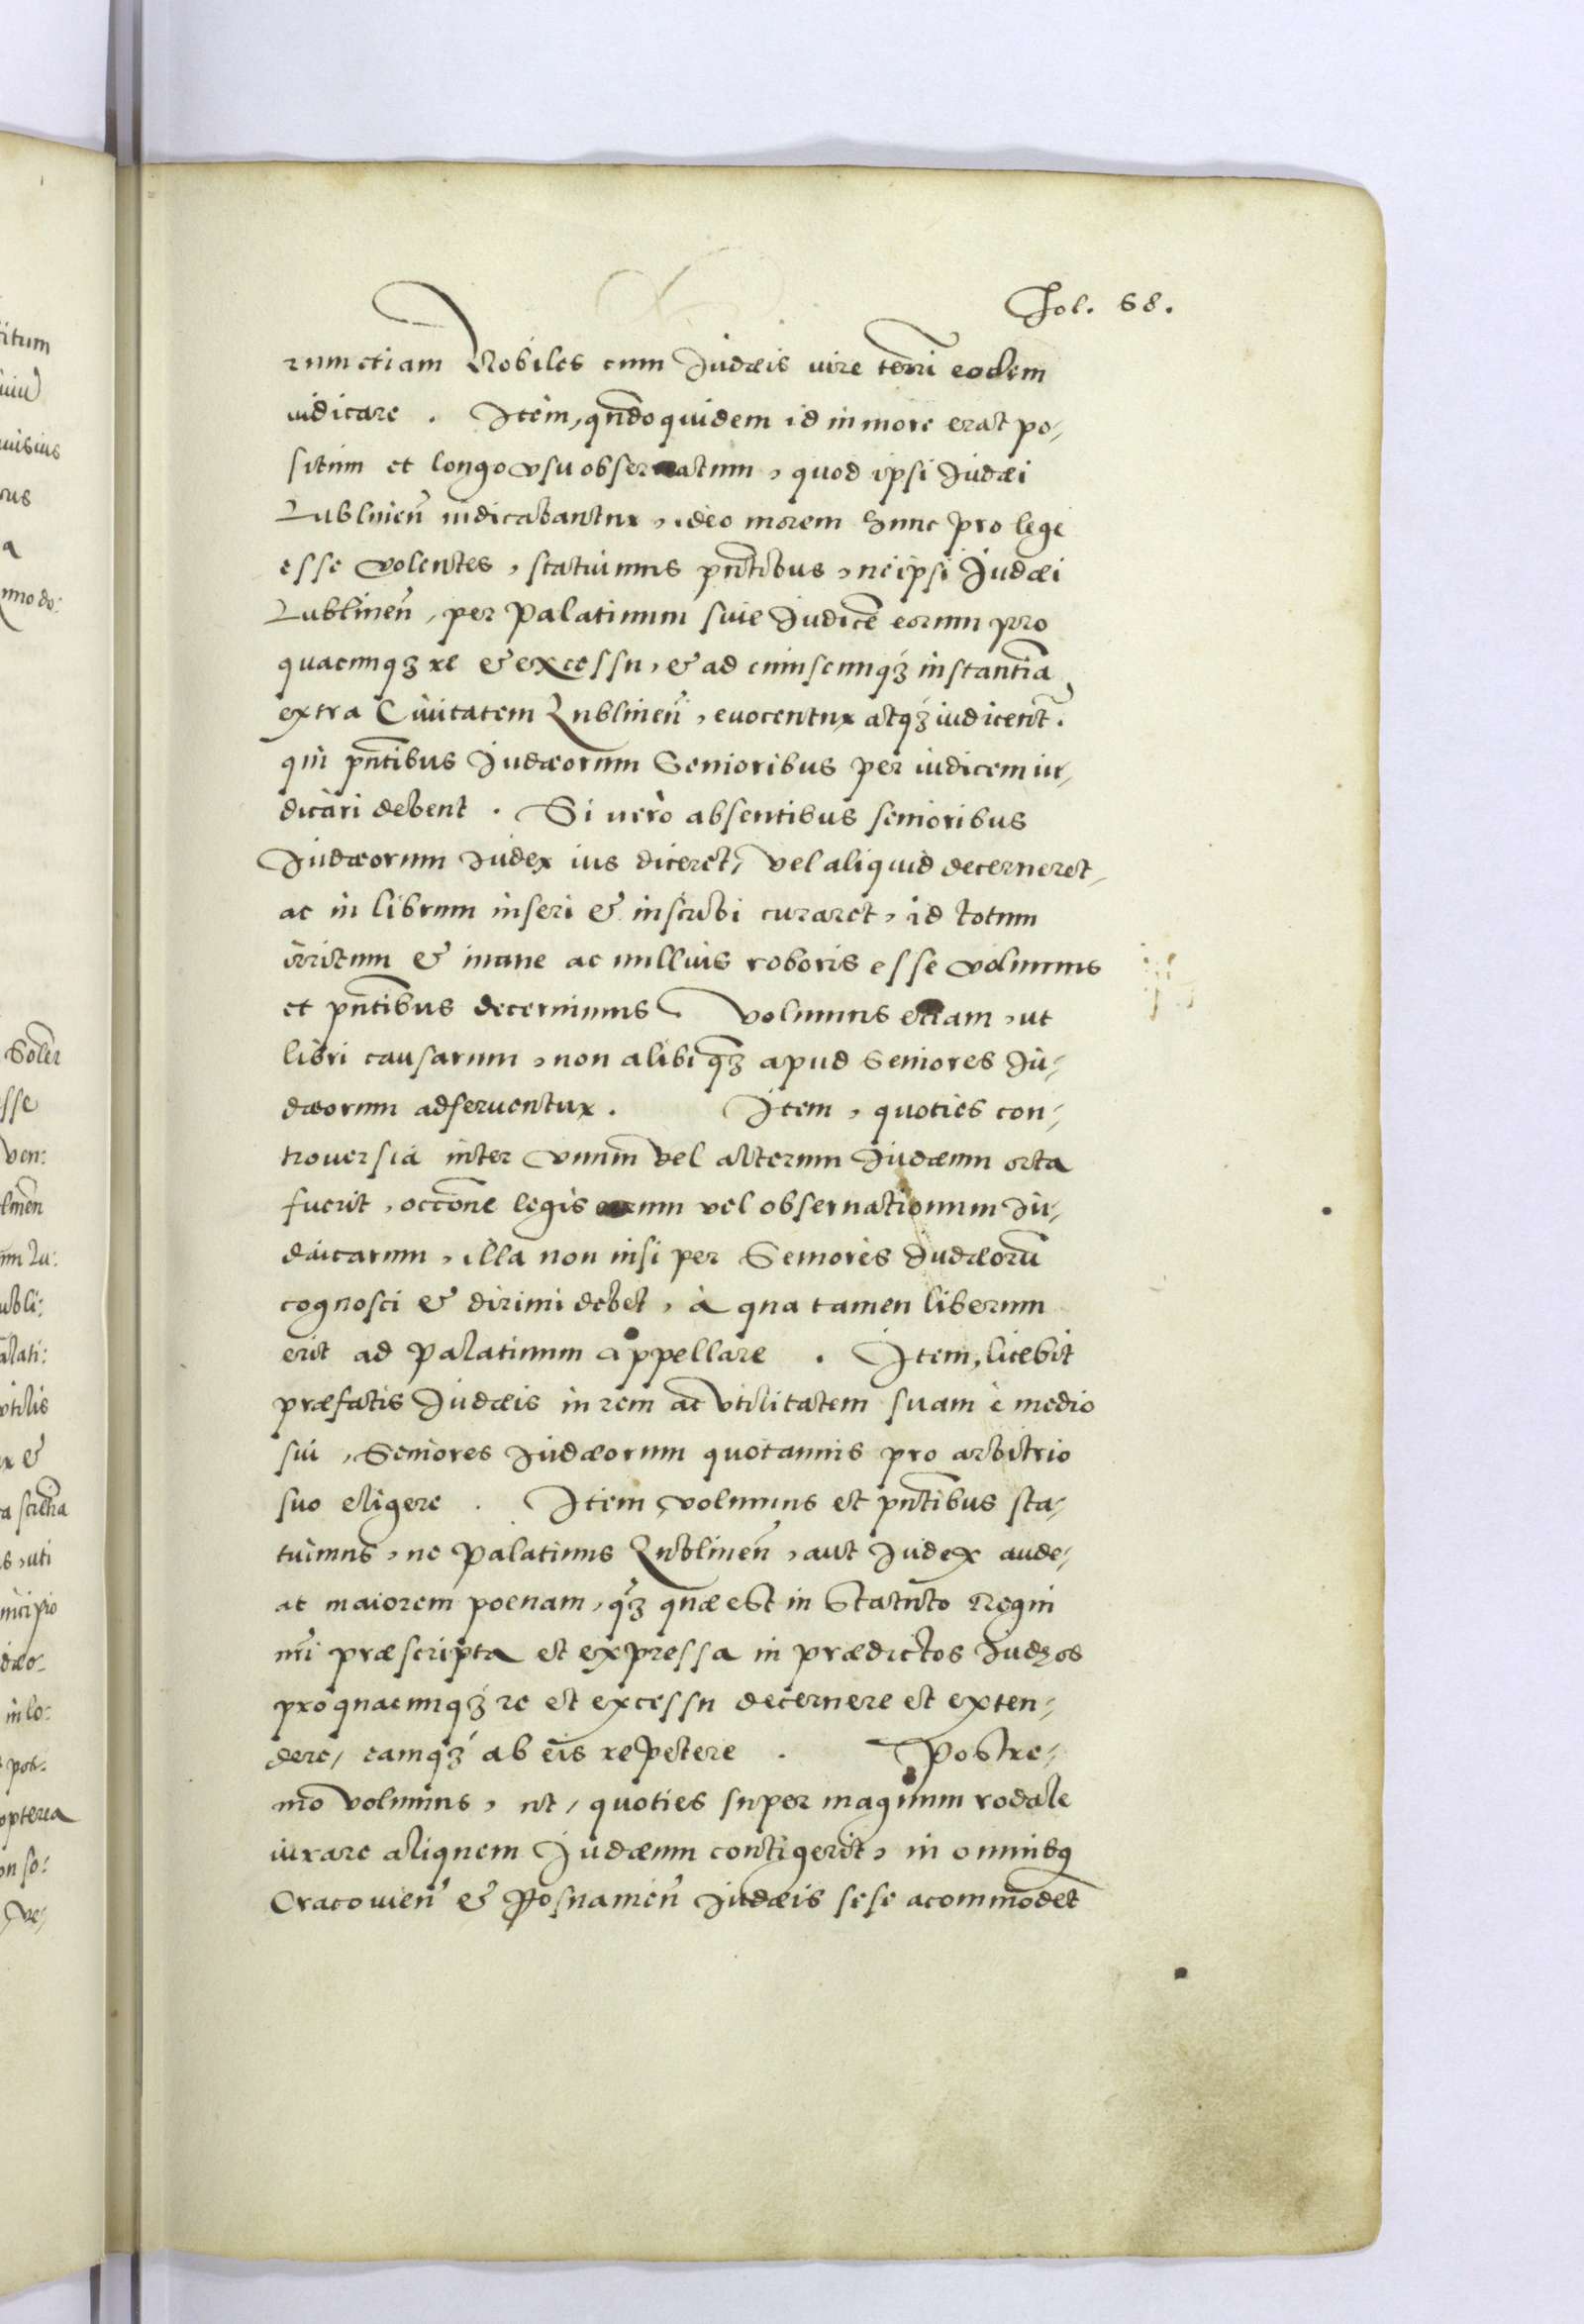 Fol. 68.
rum etiam Nobiles cum Judæis iure terrī eodem
iudicare . Item, qn̄doquidem id in more erat po-
situm et longo vsu obseruatum, quod ipsi Judæi
Lublineñ iudicabantur, ideo morem hunc pro lege
esse volentes, statuimus pn̄tibus, ne ipsi Judæi
Lublineñ, per Palatinum siue Judicē eorum pro
quacunqꝫ re & excessu, & ad cuiuscunqꝫ instantiā
extra Ciuitatem Lublineñ, euocentur atqꝫ iudicent̄.
qui pn̄tibus Judæorum Senioribus per iudicem iu-
dicari debent . Si verò absentibus senioribus
Judæorum Judex ius diceret, vel aliquid decerneret,
ac in librum inseri & inscribi curaret, id totum
irritum & inane ac nullius roboris esse volumus
et pn̄tibus decernimus. Volumus etiam, ut
libri causarum, non alibi qꝫ̄ apud Seniores Ju-
dæorum adseruentur. Item, quoties con-
trouersia inter vnum vel alterum Judæum orta
fuerit, occōne legis eorum vel obseruationum Ju-
daicarum, illa non nisi per Seniores Judæorū
cognosci & dirimi debet, à qua tamen liberum
erit ad Palatinum appellare . Item, licebit
præfatis Judæis in rem ac vtilitatem suam è medio
sui, Seniores Judæorum quotannis pro arbitrio
suo eligere . Item, volumus et pn̄tibus sta-
tuimus, ne Palatinus Lublineñ, aut Judex aude-
at maiorem poenam, qꝫ̄ quæ est in Statuto Regni
nr̄i præscripta et expressa in prædictos Judęos
pro quacunqꝫ re et excessu decernere et exten-
dere, eamqꝫ ab eis repetere . Postre-
mo volumus, ut, quoties super magnum rodale
iurare aliquem Judæum contigerit, in omnibꝗ
Cracouieñ & Posnanieñ Judæis sese acommodet